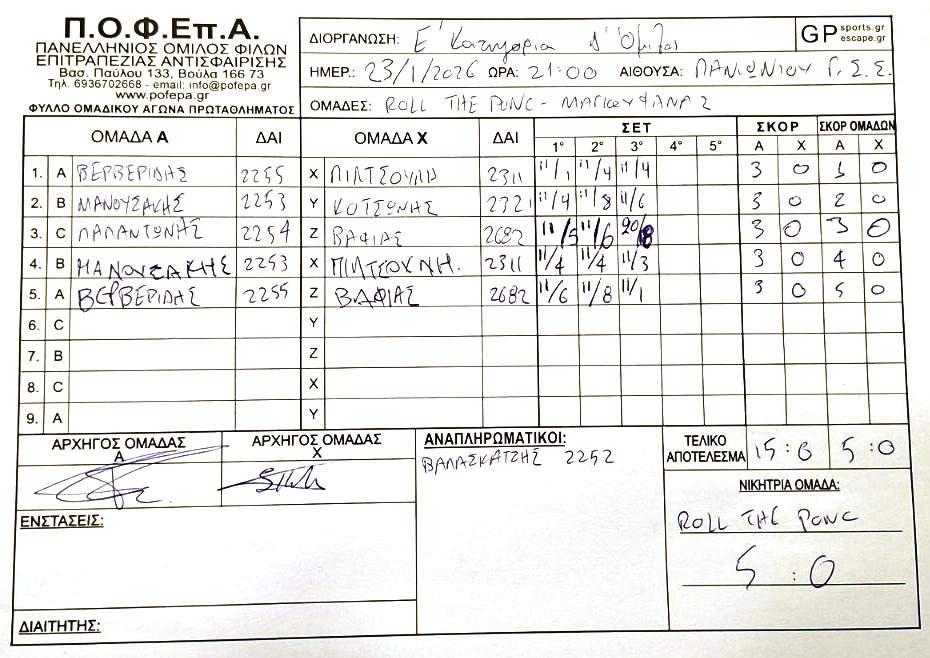 Π.Ο.Φ.Επ.Α.
ΠΑΝΕΛΛΗΝΙΟΣ ΟΜΙΛΟΣ ΦΙΛΩΝ
ΕΠΙΤΡΑΠΕΖΙΑΣ ΑΝΤΙΣΦΑΙΡΙΣΗΣ
Βασ. Παύλου 133, Βούλα 166 73
Τηλ. 6936702668 - email: info@pofepa.gr
www.pofepa.gr
ΦΥΛΛΟ ΟΜΑΔΙΚΟΥ ΑΓΩΝΑ ΠΡΩΤΑΘΛΗΜΑΤΟΣ
ΔΙΟΡΓΑΝΩΣΗ: Ε' Κατηγορια Δ' Όμιλος
GP sports.gr escape.gr
ΗΜΕΡ.: 23/1/2026 ΩΡΑ: 21:00 ΑΙΘΟΥΣΑ: ΠΑΝΙΩΝΙΟΥ Γ.Σ.Σ.
ΟΜΑΔΕΣ: ROLL THE PONG -
ΟΜΑΔΑ Α ΔΑΙ ΟΜΑΔΑ Χ ΔΑΙ ΣΕΤ ΣΚΟΡ ΣΚΟΡ ΟΜΑΔΩΝ
1° 2° 3° 4° 5° Α Χ Α Χ
1. A ΒΕΡΒΕΡΙΔΗΣ 2255 X 2311 11/1 11/4 11/4 3 0 1 0
2. B ΜΑΝΟΥΣΑΚΗΣ 2253 Y ΚΟΤΣΩΝΗΣ 2721 11/4 11/8 11/6 3 0 2 0
3. C ΠΑΠΑΝΤΩΝΗΣ 2254 Z ΒΑΦΙΑΣ 2682 11/5 11/6 3 0 3 0
4. B ΜΑΝΟΥΣΑΚΗΣ 2253 X 2311 11/4 11/4 11/3 3 0 4 0
5. A ΒΕΡΒΕΡΙΔΗΣ 2255 Z ΒΑΦΙΑΣ 2682 11/6 11/8 11/1 3 0 5 0
6. C Y
7. B Z
8. C X
9. A Y
ΑΡΧΗΓΟΣ ΟΜΑΔΑΣ Α ΑΡΧΗΓΟΣ ΟΜΑΔΑΣ Χ
ΑΝΑΠΛΗΡΩΜΑΤΙΚΟΙ:
ΒΑΛΑΣΚΑΤΖΗΣ 2252
ΤΕΛΙΚΟ ΑΠΟΤΕΛΕΣΜΑ 15:0 5:0
ΝΙΚΗΤΡΙΑ ΟΜΑΔΑ:
ROLL THE PONG
5 : 0
ΕΝΣΤΑΣΕΙΣ:
ΔΙΑΙΤΗΤΗΣ: